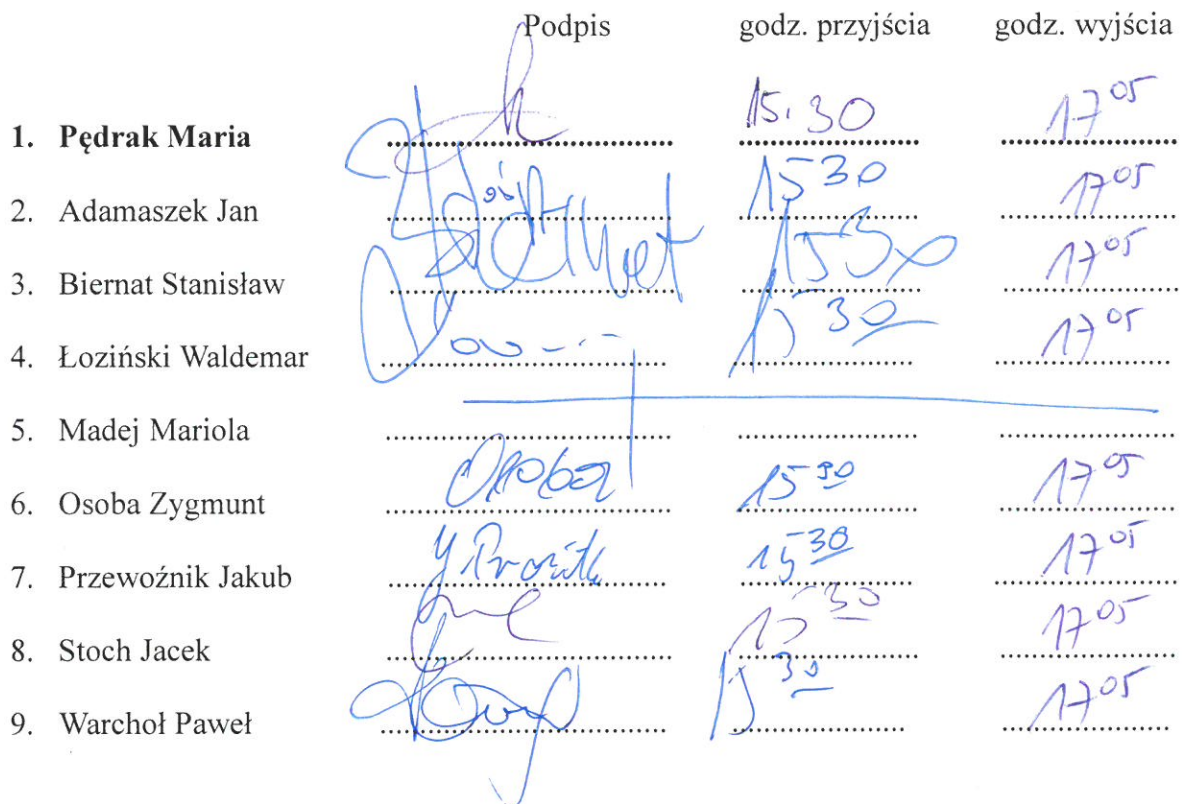 Podpis godz. przyjścia godz. wyjścia
1. Pędrak Maria 15.30 17 05
2. Adamaszek Jan 15 30 17 05
3. Biernat Stanisław 15 30 17 05
4. Łoziński Waldemar 15 30 17 05
5. Madej Mariola
6. Osoba Zygmunt Osoba 15 30 17 05
7. Przewoźnik Jakub 15 30 17 05
8. Stoch Jacek 15 30 17 05
9. Warchoł Paweł 15 30 17 05